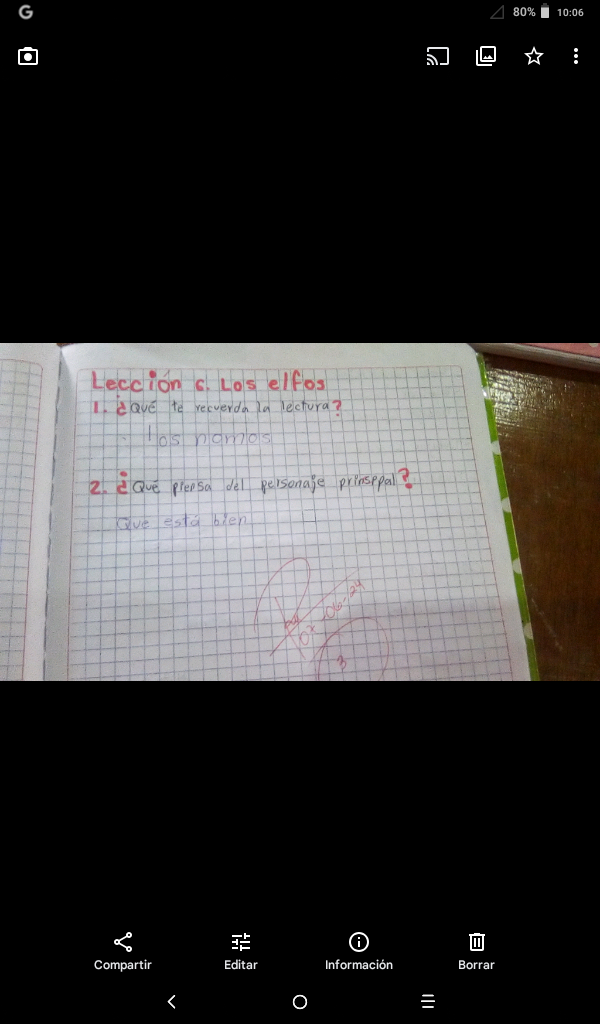 G
80%
10:06
Lección 6. Los elfos
1. ¿Qué te recuerda la lectura?
los nomos
2. ¿Qué piensa del personaje prinsppal?
Que está bien
07-06-24
3
Compartir
Editar
Información
Borrar